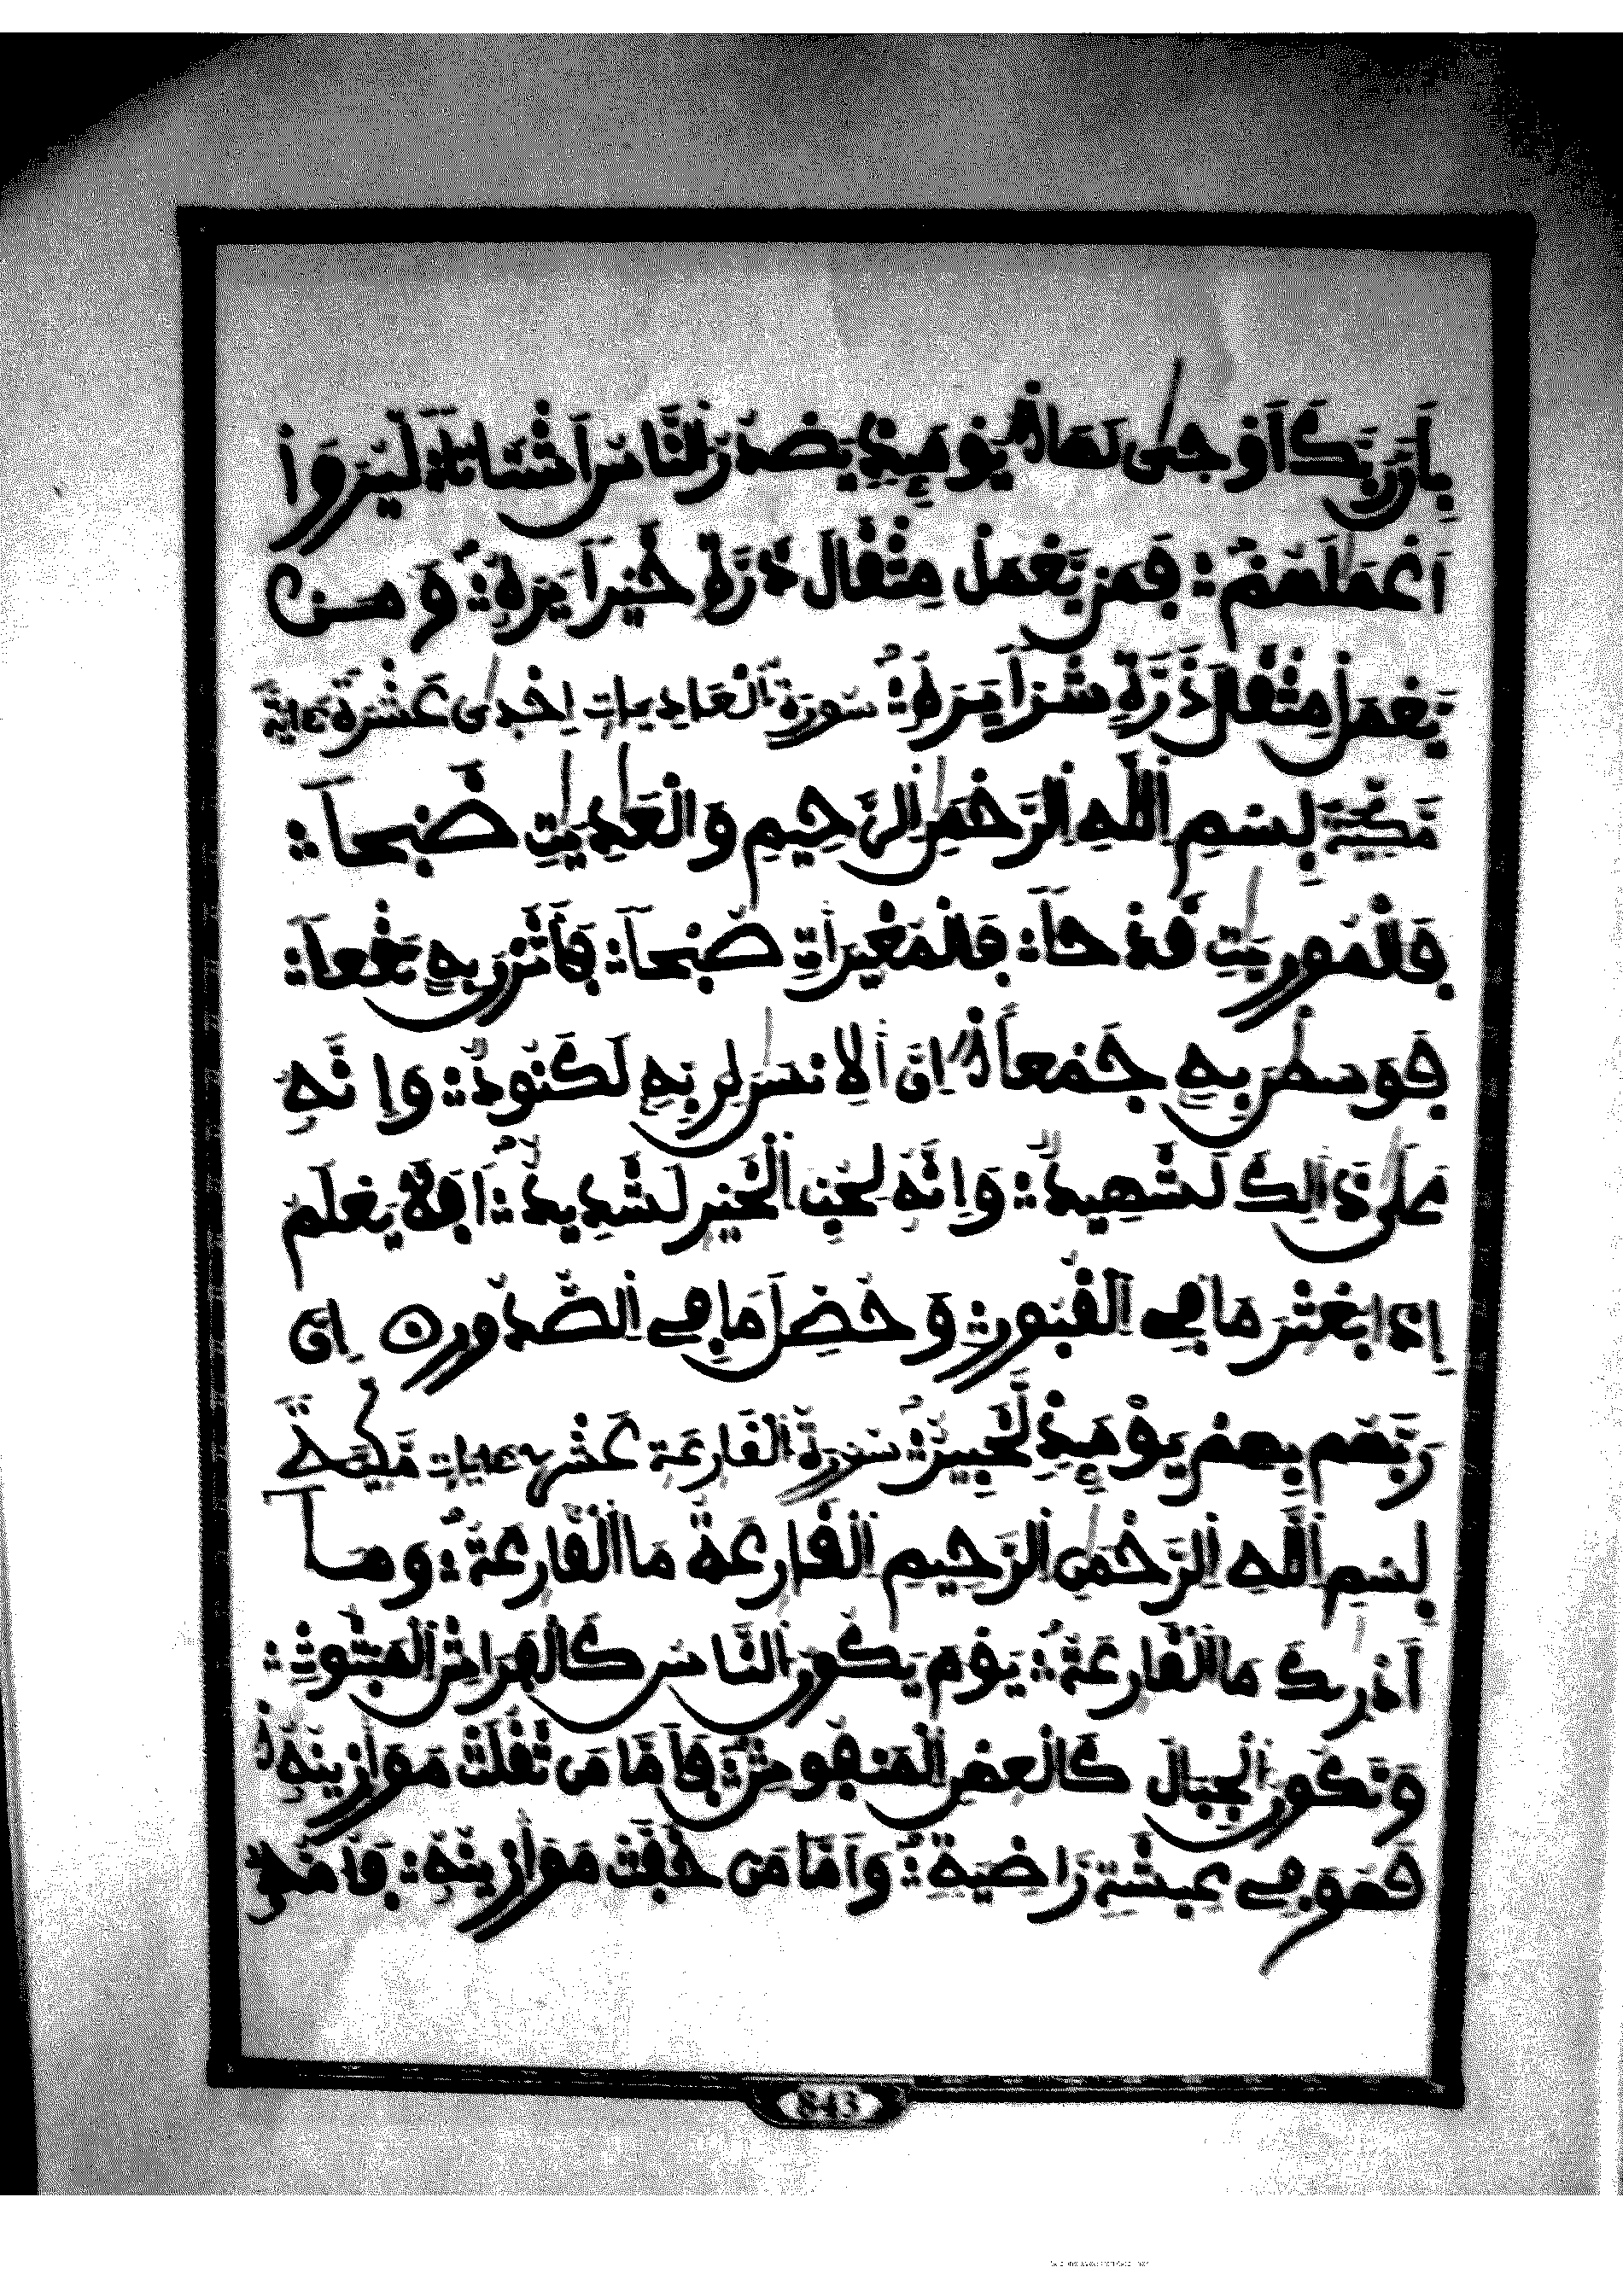 بِأَنَّ رَبَّكَ أَوْحَىٰ لَهَا ۝ يَوْمَئِذٍ يَصْدُرُ النَّاسُ أَشْتَاتًا لِيُرَوْا
أَعْمَٰلَهُمْ ۝ فَمَنْ يَعْمَلْ مِثْقَالَ ذَرَّةٍ خَيْرًا يَرَهُ ۝ وَمَنْ
يَعْمَلْ مِثْقَالَ ذَرَّةٍ شَرًّا يَرَهُ ۝ سُورَةُ الْعَادِيَاتِ إِحْدَىٰ عَشْرَةَ ءَايَةً
مَكِّيَّةٌ بِسْمِ اللَّهِ الرَّحْمَٰنِ الرَّحِيمِ وَالْعَٰدِيَٰتِ ضَبْحًا ۝
فَالْمُورِيَٰتِ قَدْحًا ۝ فَالْمُغِيرَاتِ صُبْحًا ۝ فَأَثَرْنَ بِهِ نَقْعًا ۝
فَوَسَطْنَ بِهِ جَمْعًا ۝ إِنَّ الْإِنسَٰنَ لِرَبِّهِ لَكَنُودٌ ۝ وَإِنَّهُ
عَلَىٰ ذَٰلِكَ لَشَهِيدٌ ۝ وَإِنَّهُ لِحُبِّ الْخَيْرِ لَشَدِيدٌ ۝ أَفَلَا يَعْلَمُ
إِذَا بُعْثِرَ مَا فِي الْقُبُورِ ۝ وَحُصِّلَ مَا فِي الصُّدُورِ ۝ إِنَّ
رَبَّهُم بِهِمْ يَوْمَئِذٍ لَخَبِيرٌ ۝ سُورَةُ الْقَارِعَةِ عَشْرُ ءَايَاتٍ مَكِّيَّةٌ
بِسْمِ اللَّهِ الرَّحْمَٰنِ الرَّحِيمِ الْقَارِعَةُ مَا الْقَارِعَةُ ۝ وَمَا
أَدْرَىٰكَ مَا الْقَارِعَةُ ۝ يَوْمَ يَكُونُ النَّاسُ كَالْفَرَاشِ الْمَبْثُوثِ ۝
وَتَكُونُ الْجِبَالُ كَالْعِهْنِ الْمَنفُوشِ ۝ فَأَمَّا مَن ثَقُلَتْ مَوَازِينُهُ ۝
فَهُوَ فِي عِيشَةٍ رَاضِيَةٍ ۝ وَأَمَّا مَنْ خَفَّتْ مَوَازِينُهُ ۝ فَأُمُّهُ
843